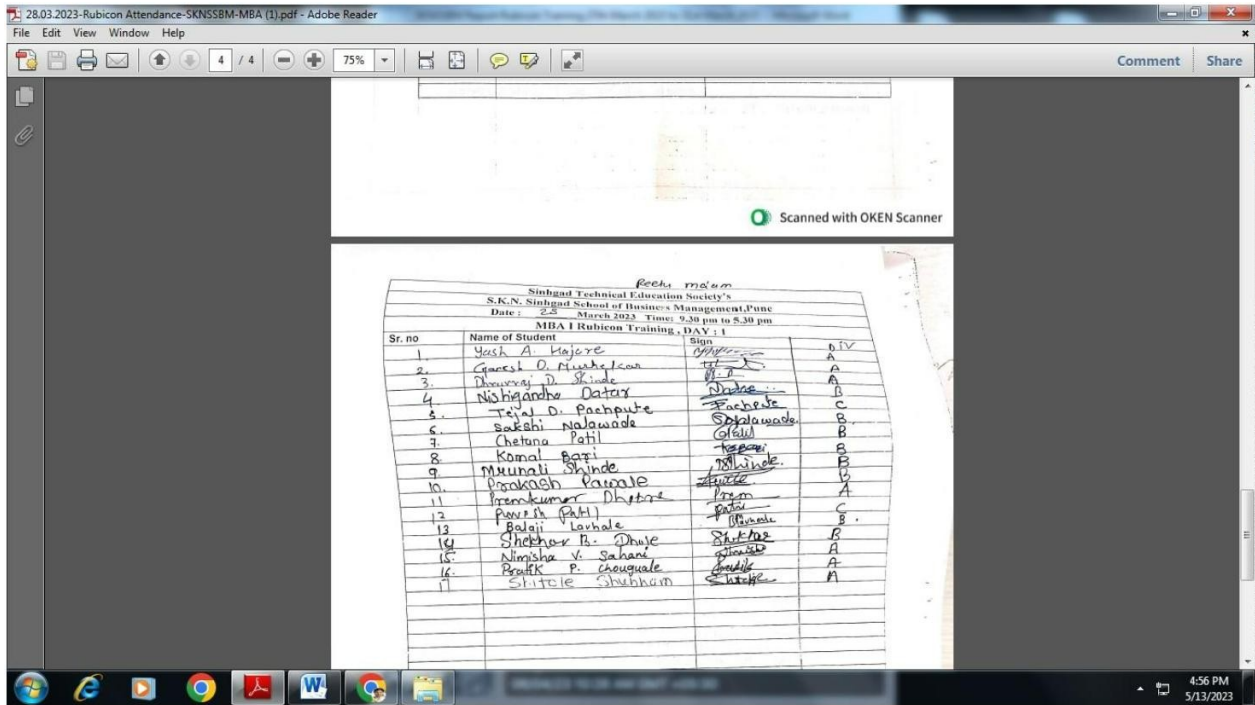 28.03.2023-Rubicon Attendance-SKNSSBM-MBA (1).pdf - Adobe Reader
File Edit View Window Help
4 / 4 75% Comment Share
Scanned with OKEN Scanner
Reetu ma'am
Sinhgad Technical Education Society's
S.K.N. Sinhgad School of Business Management,Pune
Date : 28 March 2023 Time: 9.30 pm to 5.30 pm
MBA I Rubicon Training , DAY : 1
Sr. no Name of Student Sign DIV
1. Yash A. Hajare A
2. Ganesh D. A
3. D. Shinde A
4 Nishigandha Datar B
5. Tejal D. Pachpute Pachpute C
6. Sakshi Nalawade B.
7. Chetana Patil CPatil B
8. Komal Bari B
9. Mrunali Shinde Shinde. B
10. Prakash Pawale B
11 Premkumar Dhotre Prem A
12 Patil Patil C
13 Balaji Lavhale B.
14 Shekhar B. Dhule Shekhar B
15. Nimisha V. Sahani A
16. Pratik P. Chouguale A
17 Shitole Shubham Shitole A
4:56 PM
5/13/2023